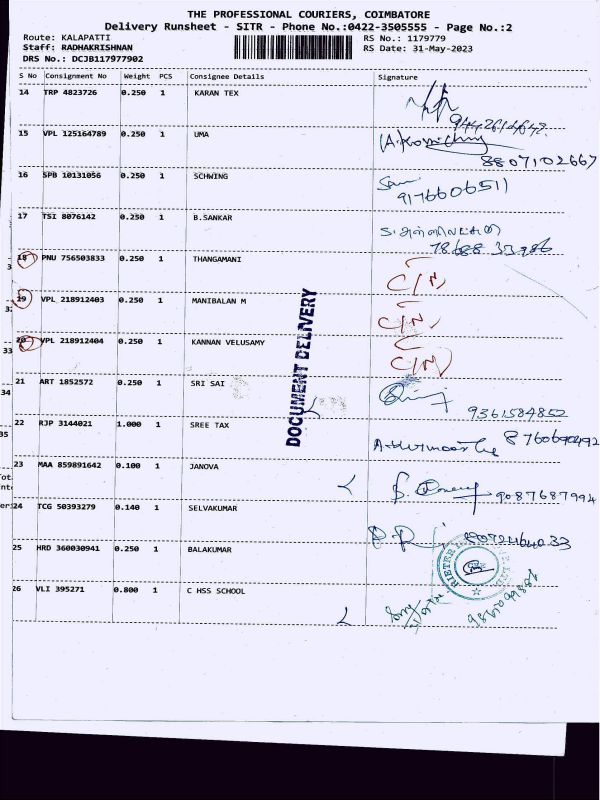 THE PROFESSIONAL COURIERS, COIMBATORE
Delivery Runsheet - SITR - Phone No.:0422-3505555 - Page No.:2
Route: KALAPATTI RS No.: 1179779
Staff: RADHAKRISHNAN RS Date: 31-May-2023
DRS No.: DCJB117977902
S No Consignment No Weight PCS Consignee Details Signature
14 TRP 4823726 0.250 1 KARAN TEX
15 VPL 125164789 0.250 1 UMA
8807102667
16 SPB 10131056 0.250 1 SCHWING
9176606511
17 TSI 8076142 0.250 1 B.SANKAR
18 PNU 756503833 0.250 1 THANGAMANI
C/N
19 VPL 218912403 0.250 1 MANIBALAN M
C/N
20 VPL 218912404 0.250 1 KANNAN VELUSAMY
C/N
DOCUMENT DELIVERY
21 ART 1852572 0.250 1 SRI SAI
9361584852
22 RJP 3144021 1.000 1 SREE TAX
8760690492
23 MAA 859891642 0.100 1 JANOVA
9087687994
24 TCG 50393279 0.140 1 SELVAKUMAR
25 HRD 360030941 0.250 1 BALAKUMAR
RIETER
26 VLI 395271 0.800 1 C HSS SCHOOL